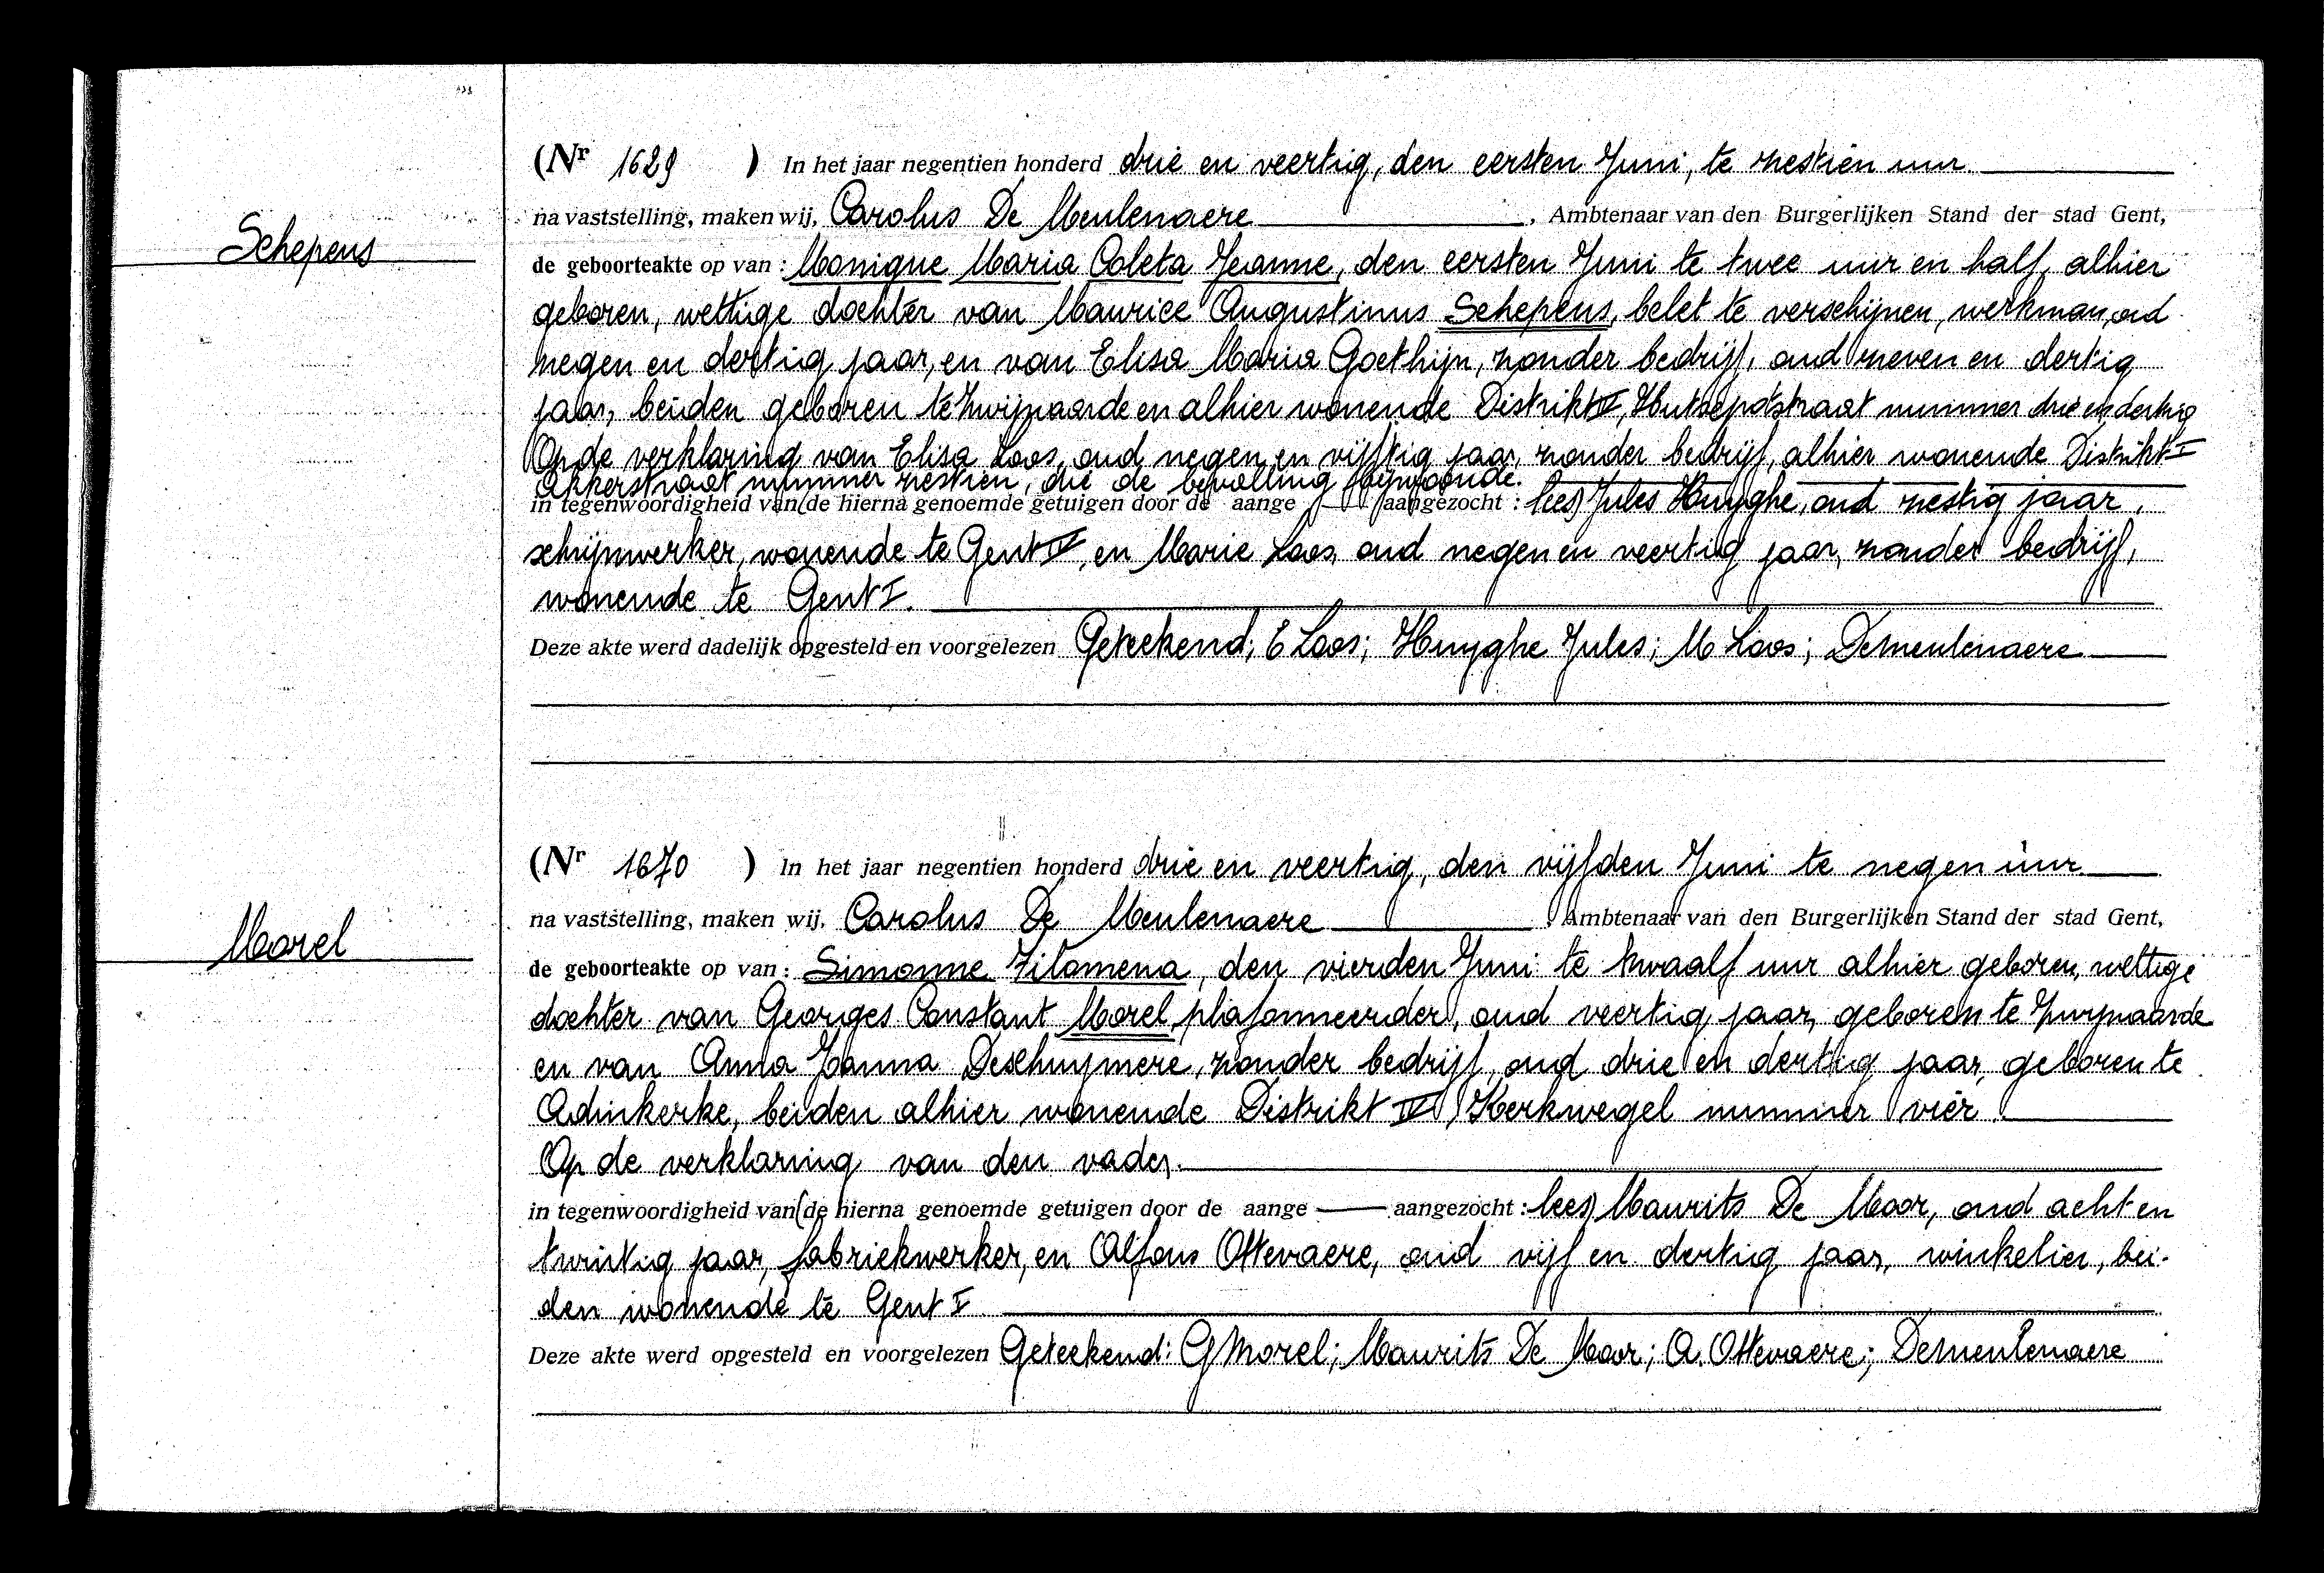 Schepens
(Nr 1629 ) In het jaar negentien honderd drie en veertig, den eersten Juni, te zestien uur
na vaststelling, maken wij, Carolus De Meulenaere, Ambtenaar van den Burgerlijken Stand der stad Gent,
de geboorteakte op van : Monique Maria Coleta Jeanne, den eersten Juni te twee uur en half, alhier
geboren, wettige dochter van Maurice Augustinus Schepens, belet te verschijnen, werkman, oud
negen en dertig jaar, en van Elisa Maria Goethijn, zonder bedrijf, oud zeven en dertig
jaar, beiden geboren te Zwijnaarde en alhier wonende Distrikt IV, Hutsepotstraat nummer drie en dertig
Op de verklaring van Elisa Loos, oud negen en vijftig jaar, zonder bedrijf, alhier wonende Distrikt I
Akkerstraat nummer zestien, die de bevalling bijwoonde.
in tegenwoordigheid van (de hierna genoemde getuigen door de aange — aangezocht : lees) Jules Huyghe, oud zestig jaar,
schrijnwerker, wonende te Gent IV, en Marie Loos, oud negen en veertig jaar, zonder bedrijf,
wonende te Gent I.
Deze akte werd dadelijk opgesteld en voorgelezen Geteekend; E Loos; Huyghe Jules; M Loos; Demeulenaere
Morel
(Nr 1670 ) In het jaar negentien honderd drie en veertig, den vijfden Juni te negen uur
na vaststelling, maken wij, Carolus De Meulenaere, Ambtenaar van den Burgerlijken Stand der stad Gent,
de geboorteakte op van : Simonne Filomena, den vierden Juni te twaalf uur alhier geboren, wettige
dochter van Georges Constant Morel, plafonneerder, oud veertig jaar, geboren te Zwijnaarde
en van Anna Joanna Deschuymere, zonder bedrijf, oud drie en dertig jaar, geboren te
Adinkerke, beiden alhier wonende Distrikt IV, Kerkwegel nummer vier.
Op de verklaring van den vader.
in tegenwoordigheid van (de hierna genoemde getuigen door de aange — aangezocht : lees) Maurits De Moor, oud acht en
twintig jaar, fabriekwerker, en Alfons Ottevaere, oud vijf en dertig jaar, winkelier, bei-
den wonende te Gent I
Deze akte werd opgesteld en voorgelezen Geteekend: G Morel; Maurits De Moor; A. Ottevaere; Demeulenaere